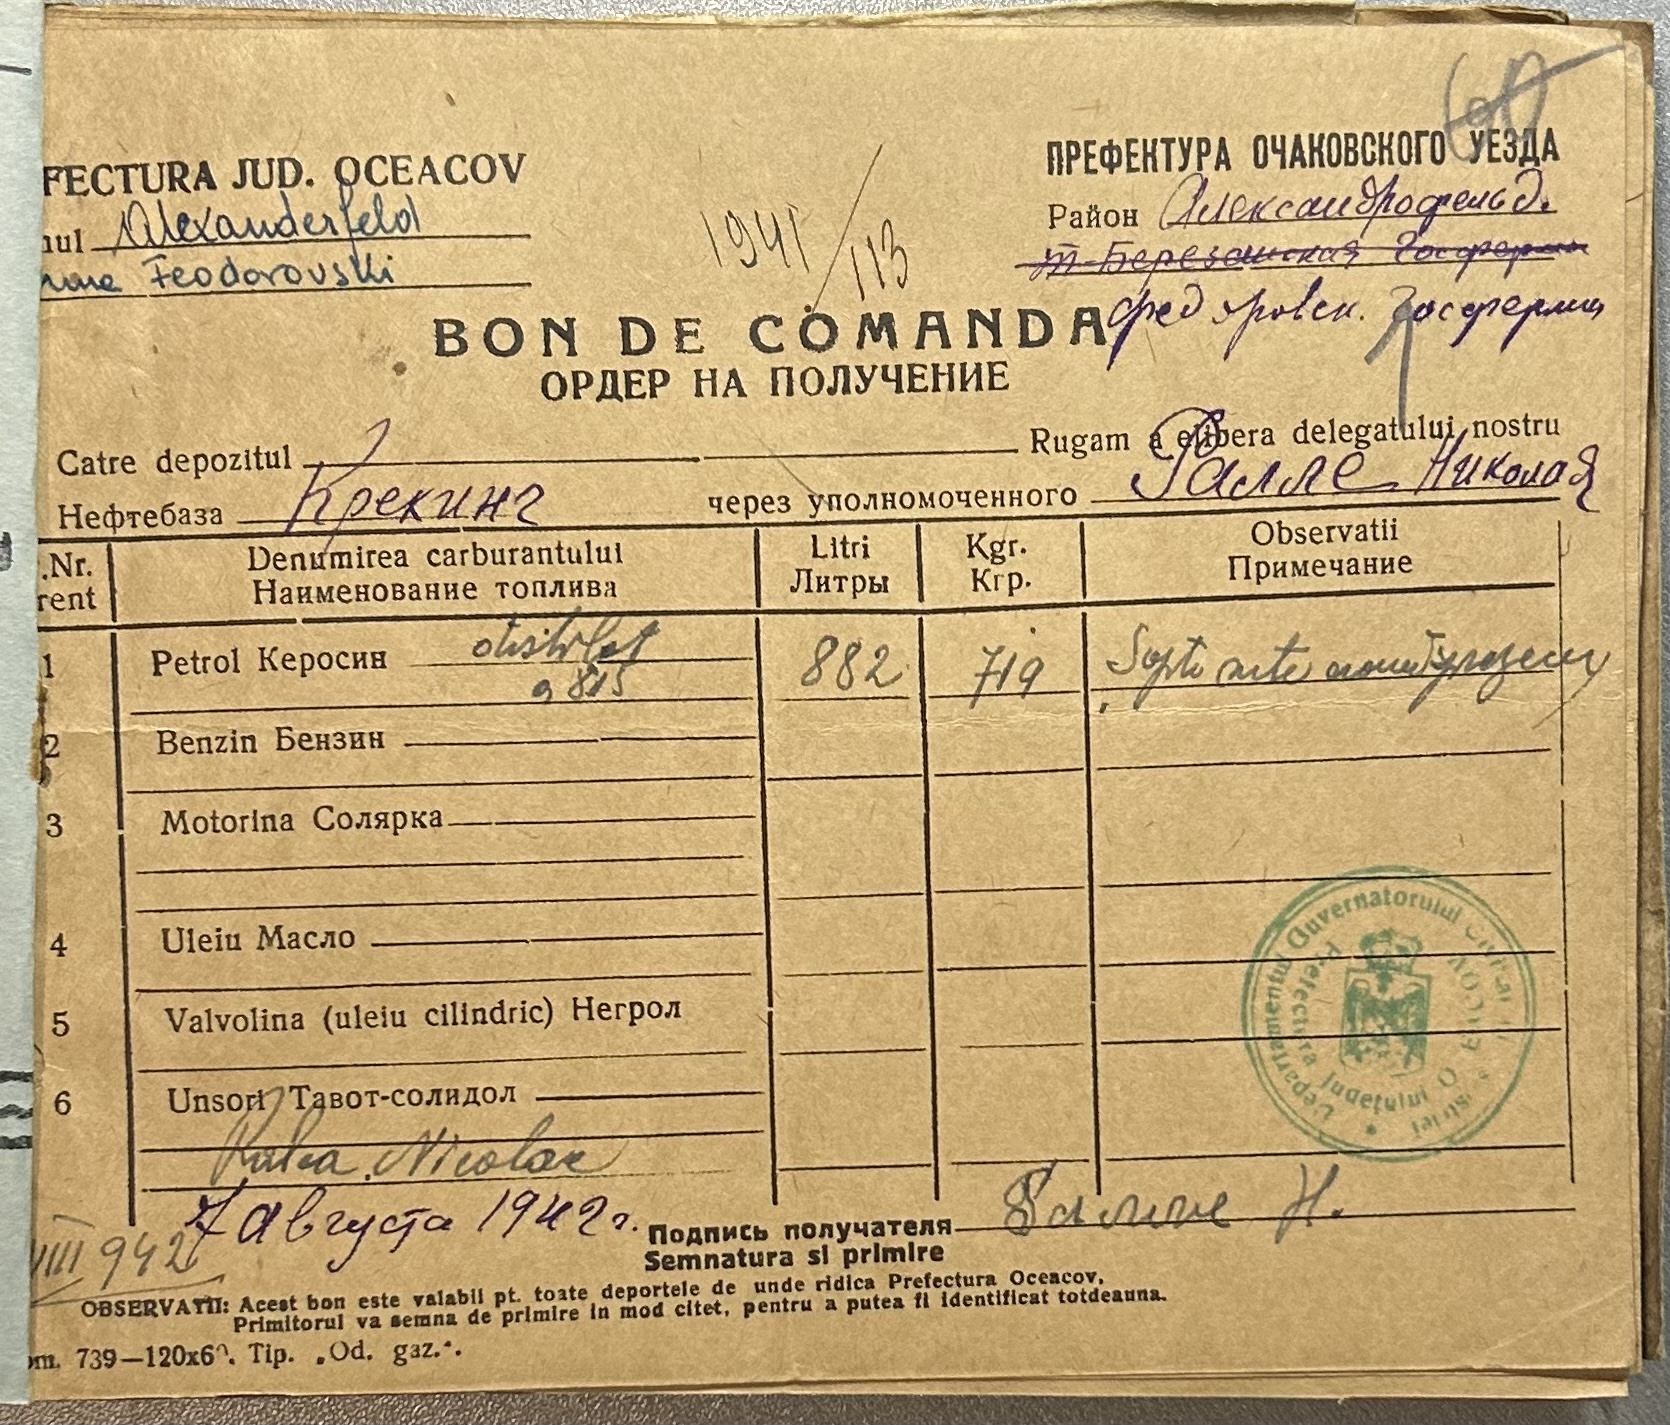 FECTURA JUD. OCEACOV
ПРЕФЕКТУРА ОЧАКОВСКОГО УЕЗДА
nul Alexanderfeld
Район Александрофельд.
Feodorovski
т-Березанская Госферма
1941/113
Госферма
BON DE COMANDA
ОРДЕР НА ПОЛУЧЕНИЕ
Catre depozitul Rugam a elibera delegatului nostru
Нефтебаза Крекинг через уполномоченного Галле Николая
.Nr. Denumirea carburantului Litri Kgr. Observatii
rent Наименование топлива Литры Кгр. Примечание
1 Petrol Керосин distilat 882 719 Sapte sute
0,815
2 Benzin Бензин
3 Motorina Солярка
4 Uleiu Масло
5 Valvolina (uleiu cilindric) Негрол
6 Unsori Тавот-солидол
Nicolae
7 Августа 1942 г. Подпись получателя Галле Н.
VIII 942 Semnatura si primire
OBSERVATII: Acest bon este valabil pt. toate deportele de unde ridica Prefectura Oceacov.
Primitorul va semna de primire in mod citet, pentru a putea fi identificat totdeauna.
om. 739—120x6 . Tip. „Od. gaz.".
Departamentul Guvernatorului Civil al
Prefectura Județului O